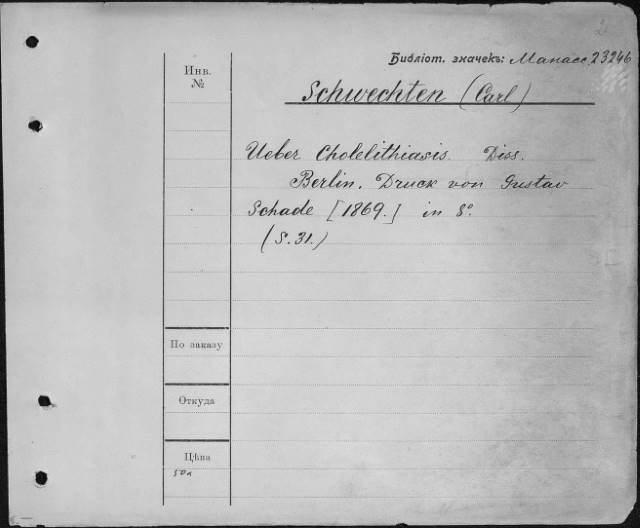 Библіот. значекъ: Манасс. 23246
Инв.
№
Schwechten (Carl)
Ueber Cholelithiasis. Diss.
Berlin. Druck von Gustav
Schade [1869.] in 8º.
(S. 31.)
По заказу
Откуда
Цѣна